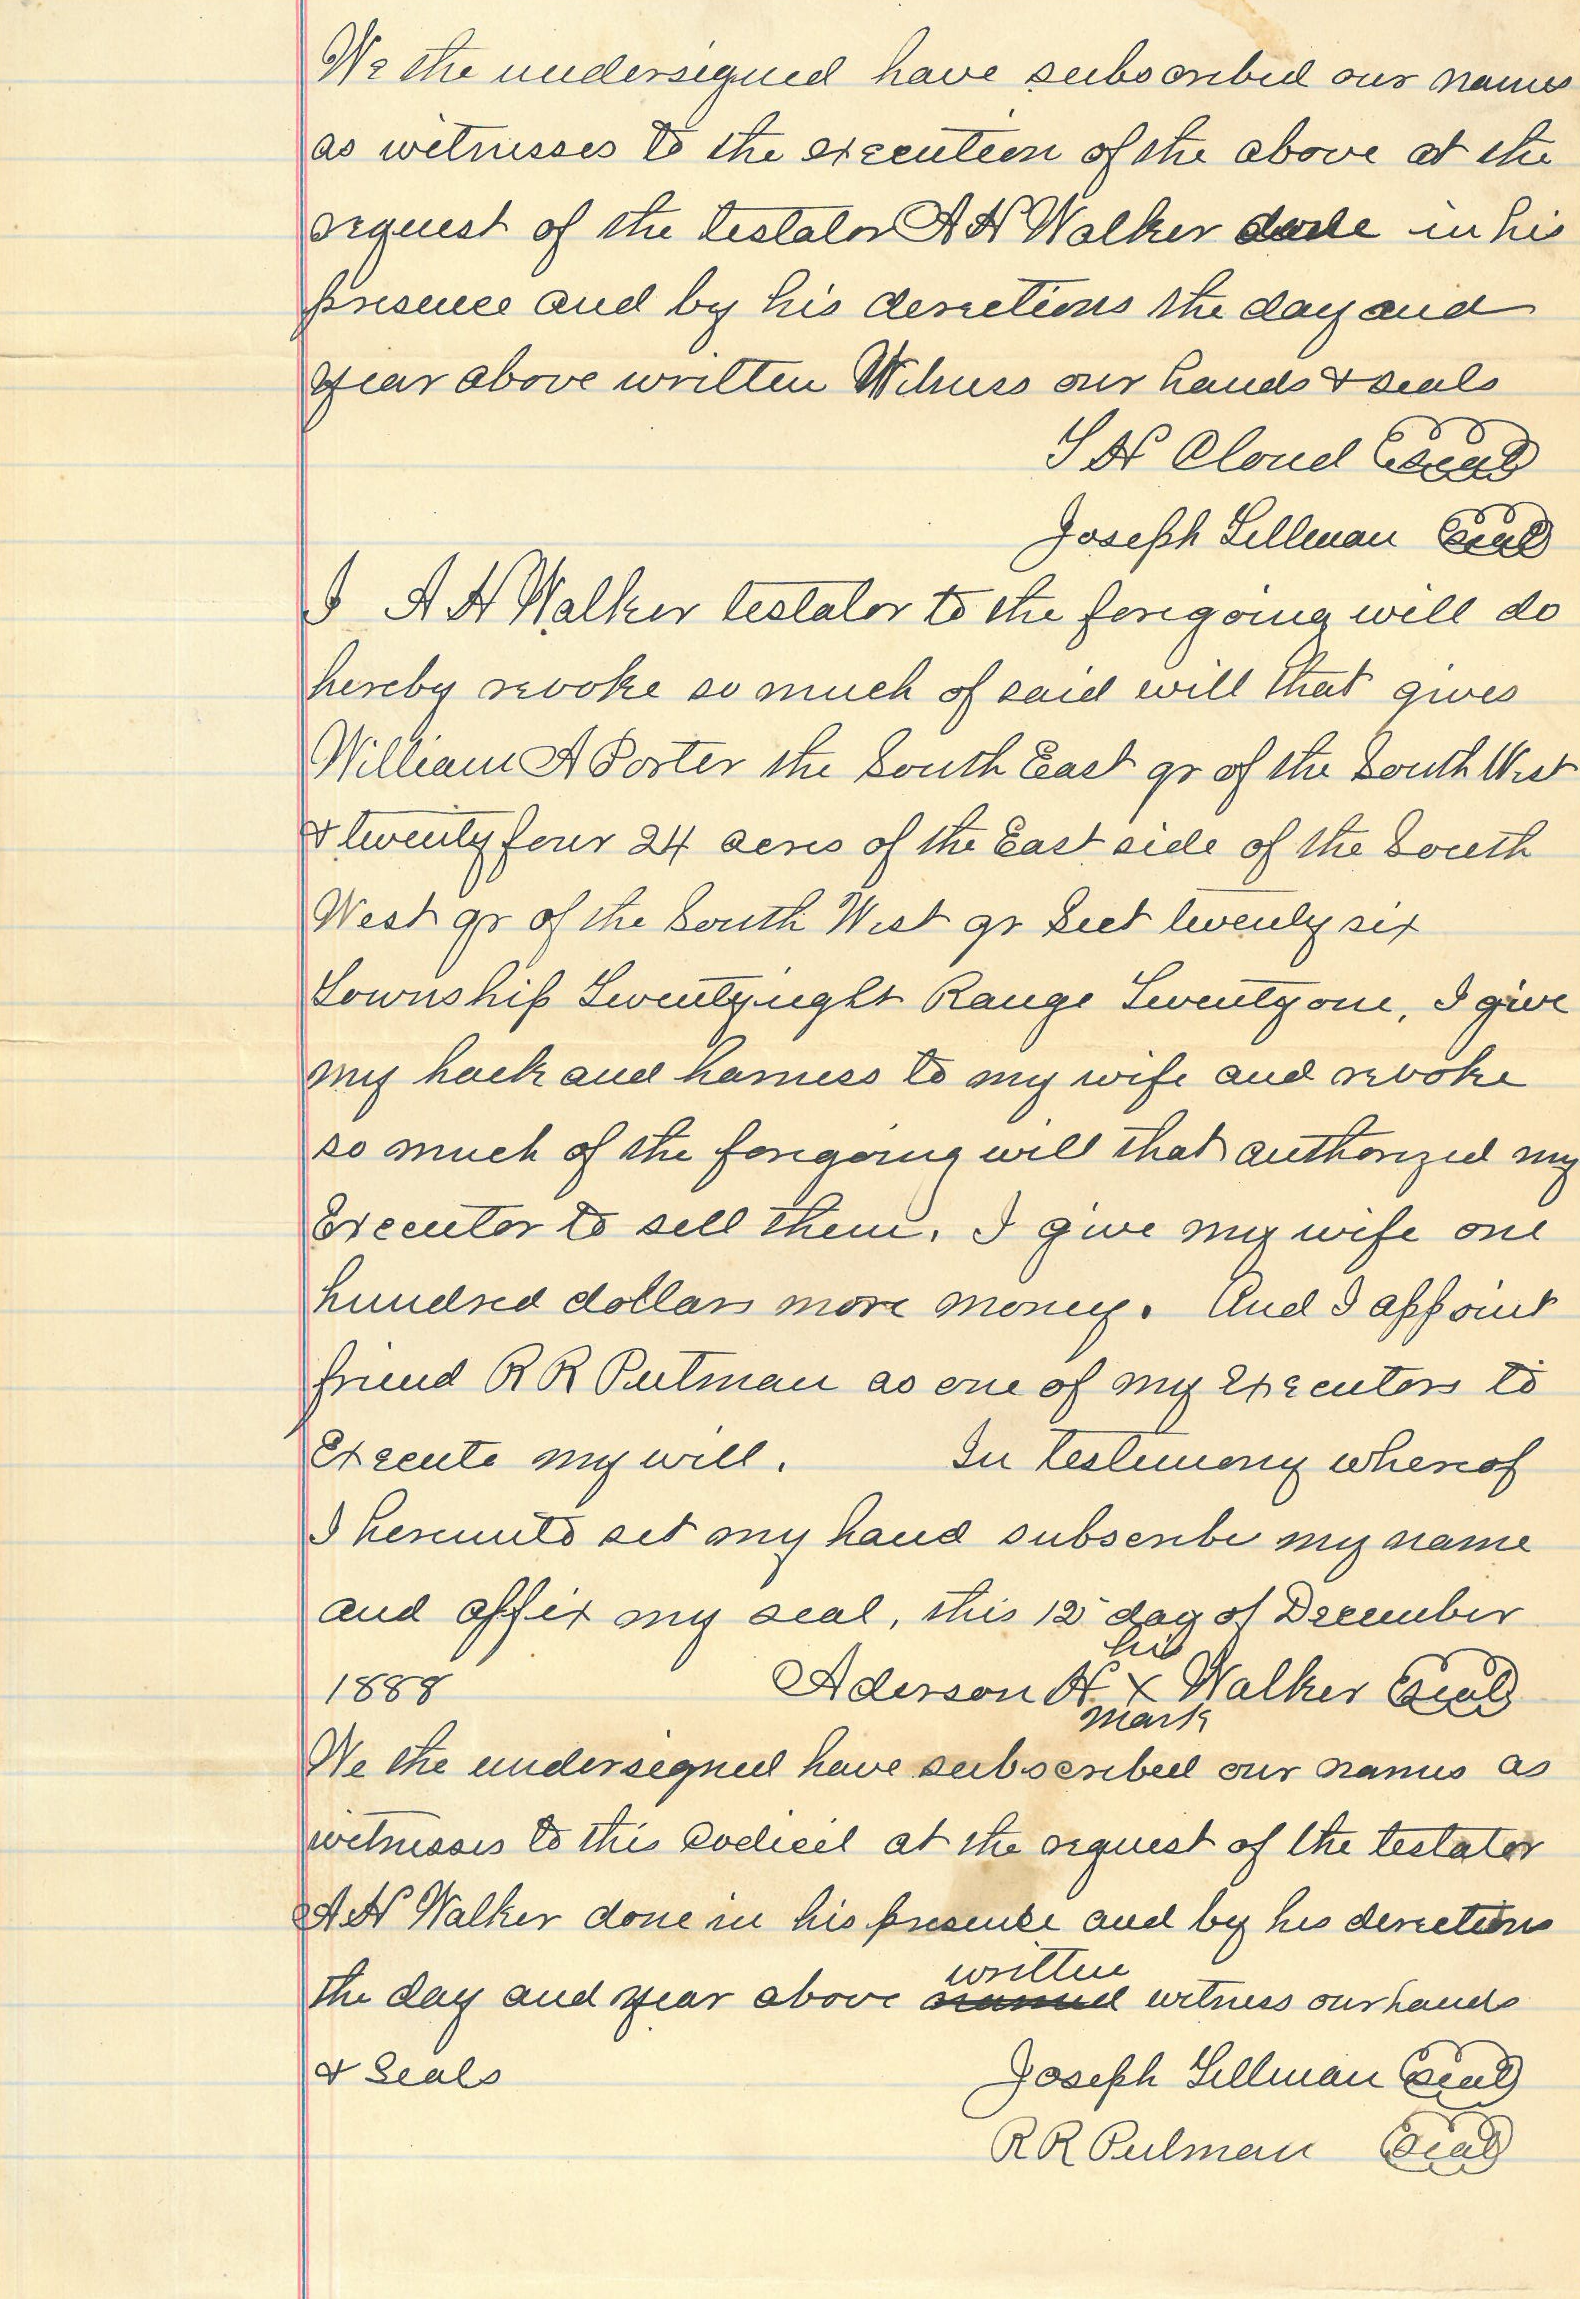 We the undersigned have subscribed our names
as witnesses to the execution of the above at the
request of the testator A H Walker done in his
presence and by his directions the day and
year above written Witness our hands & seals
T H Cloud seal
Joseph Gillman seal
I A H Walker testator to the foregoing will do
hereby revoke so much of said will that gives
William A Porter the South East qr of the South West
& twenty four 24 acres of the East side of the South
West qr of the South West qr Sect twenty six
Township Twentyeight Range Twentyone, I give
my hack and harness to my wife and revoke
so much of the foregoing will that authorized my
Executor to sell them. I give my wife one
hundred dollars more money. And I appoint
friend R R Putman as one of my Executors to
Execute my will. In testimony whereof
I hereunto set my hand subscribe my name
and affix my seal, this 12 day of December
his
1888 Aderson H X Walker seal
mark
We the undersigned have subscribed our names as
witnesses to this Codicil at the request of the testator
A H Walker done in his presence and by his directions
written
the day and year above named witness our hands
& Seals Joseph Gillman seal
R R Putman seal